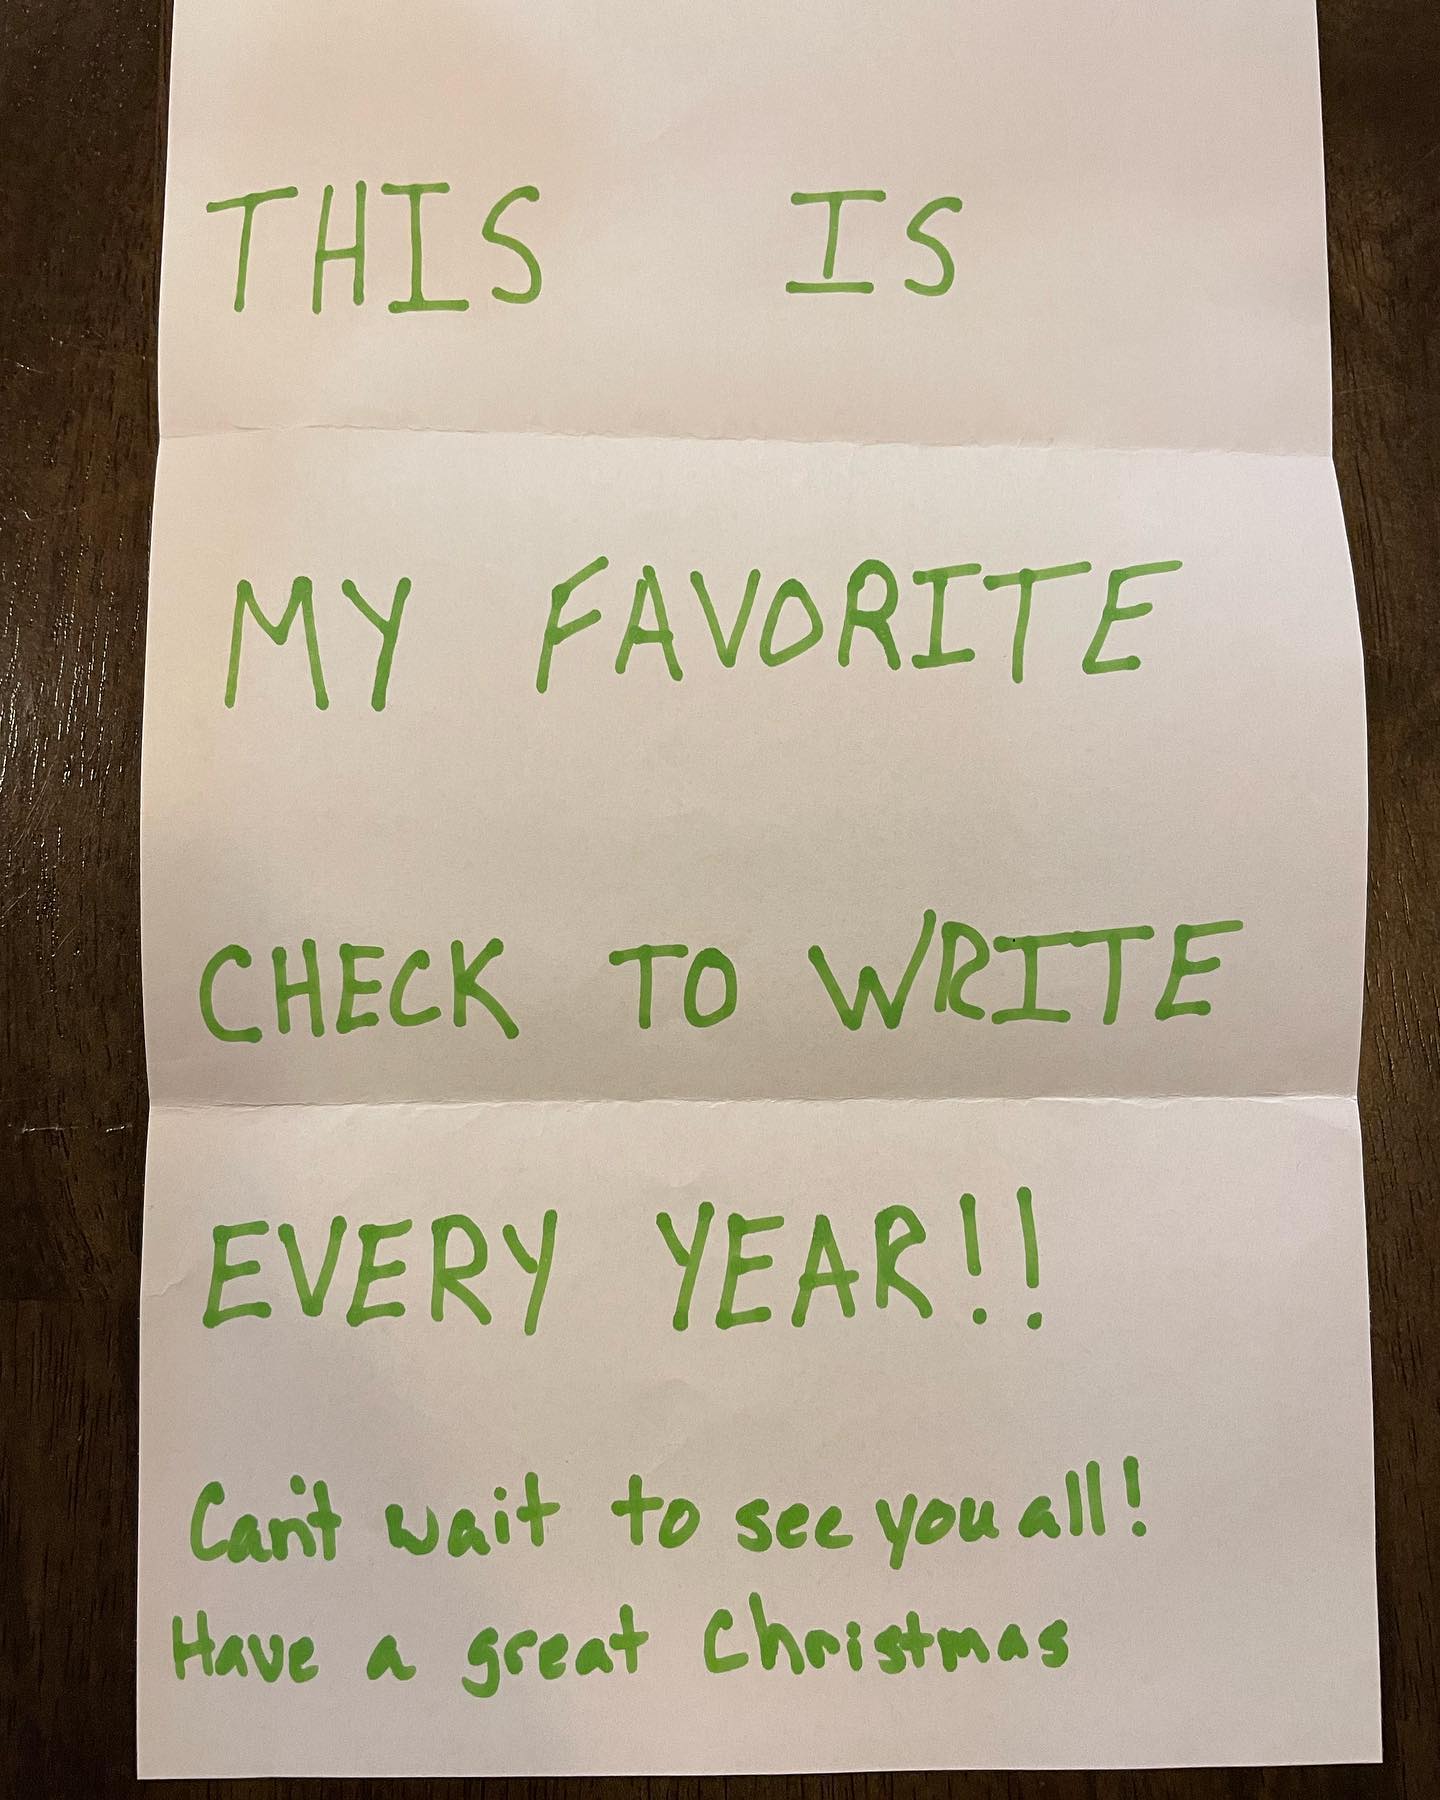 THIS IS
MY FAVORITE
CHECK TO WRITE
EVERY YEAR!!
Can't wait to see you all!
Have a great Christmas